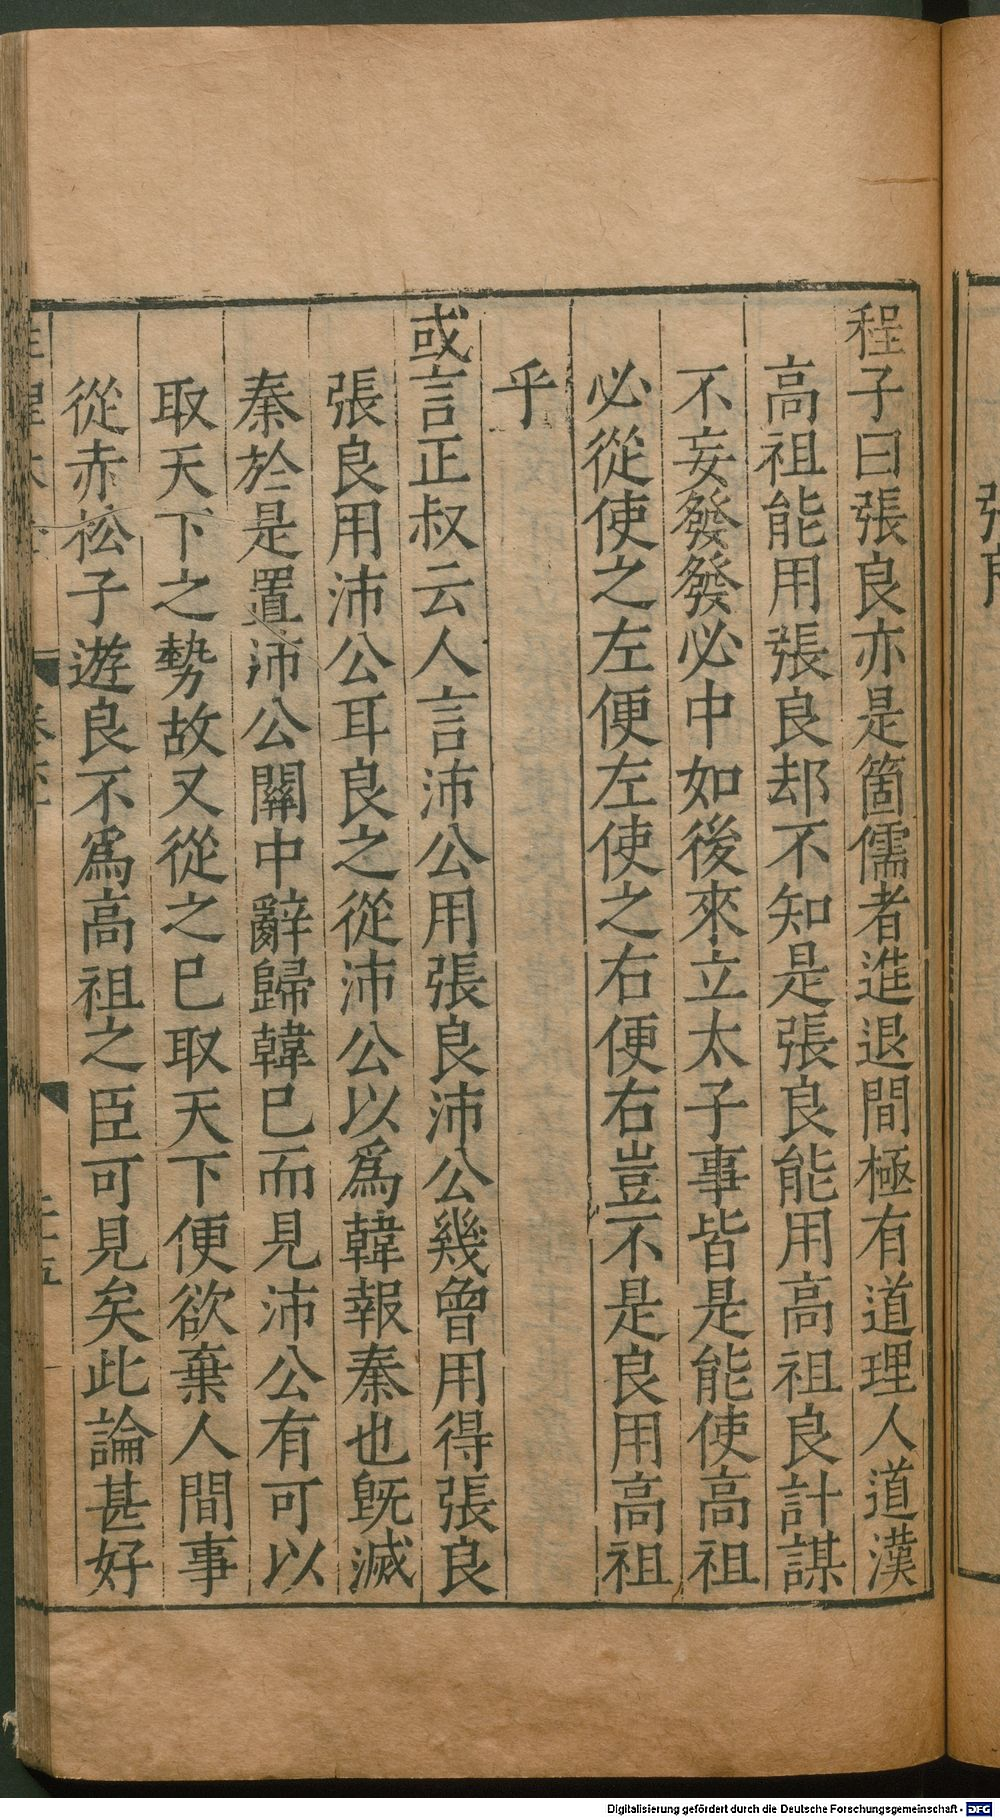 程子曰張良亦是箇儒者進退間極有道理人道漢
高祖能用張良却不知是張良能用高祖良計謀
不妄發發必中如後來立太子事皆是能使高祖
必從使之左便左使之右便右豈不是良用高祖
乎
或言正叔云人言沛公用張良沛公幾曾用得張良
張良用沛公耳良之從沛公以爲韓報秦也旣滅
秦於是置沛公關中辭歸韓已而見沛公有可以
取天下之勢故又從之已取天下便欲棄人間事
從赤松子遊良不爲高祖之臣可見矣此論甚好
張良
Digitalisierung gefördert durch die Deutsche Forschungsgemeinschaft - DFG